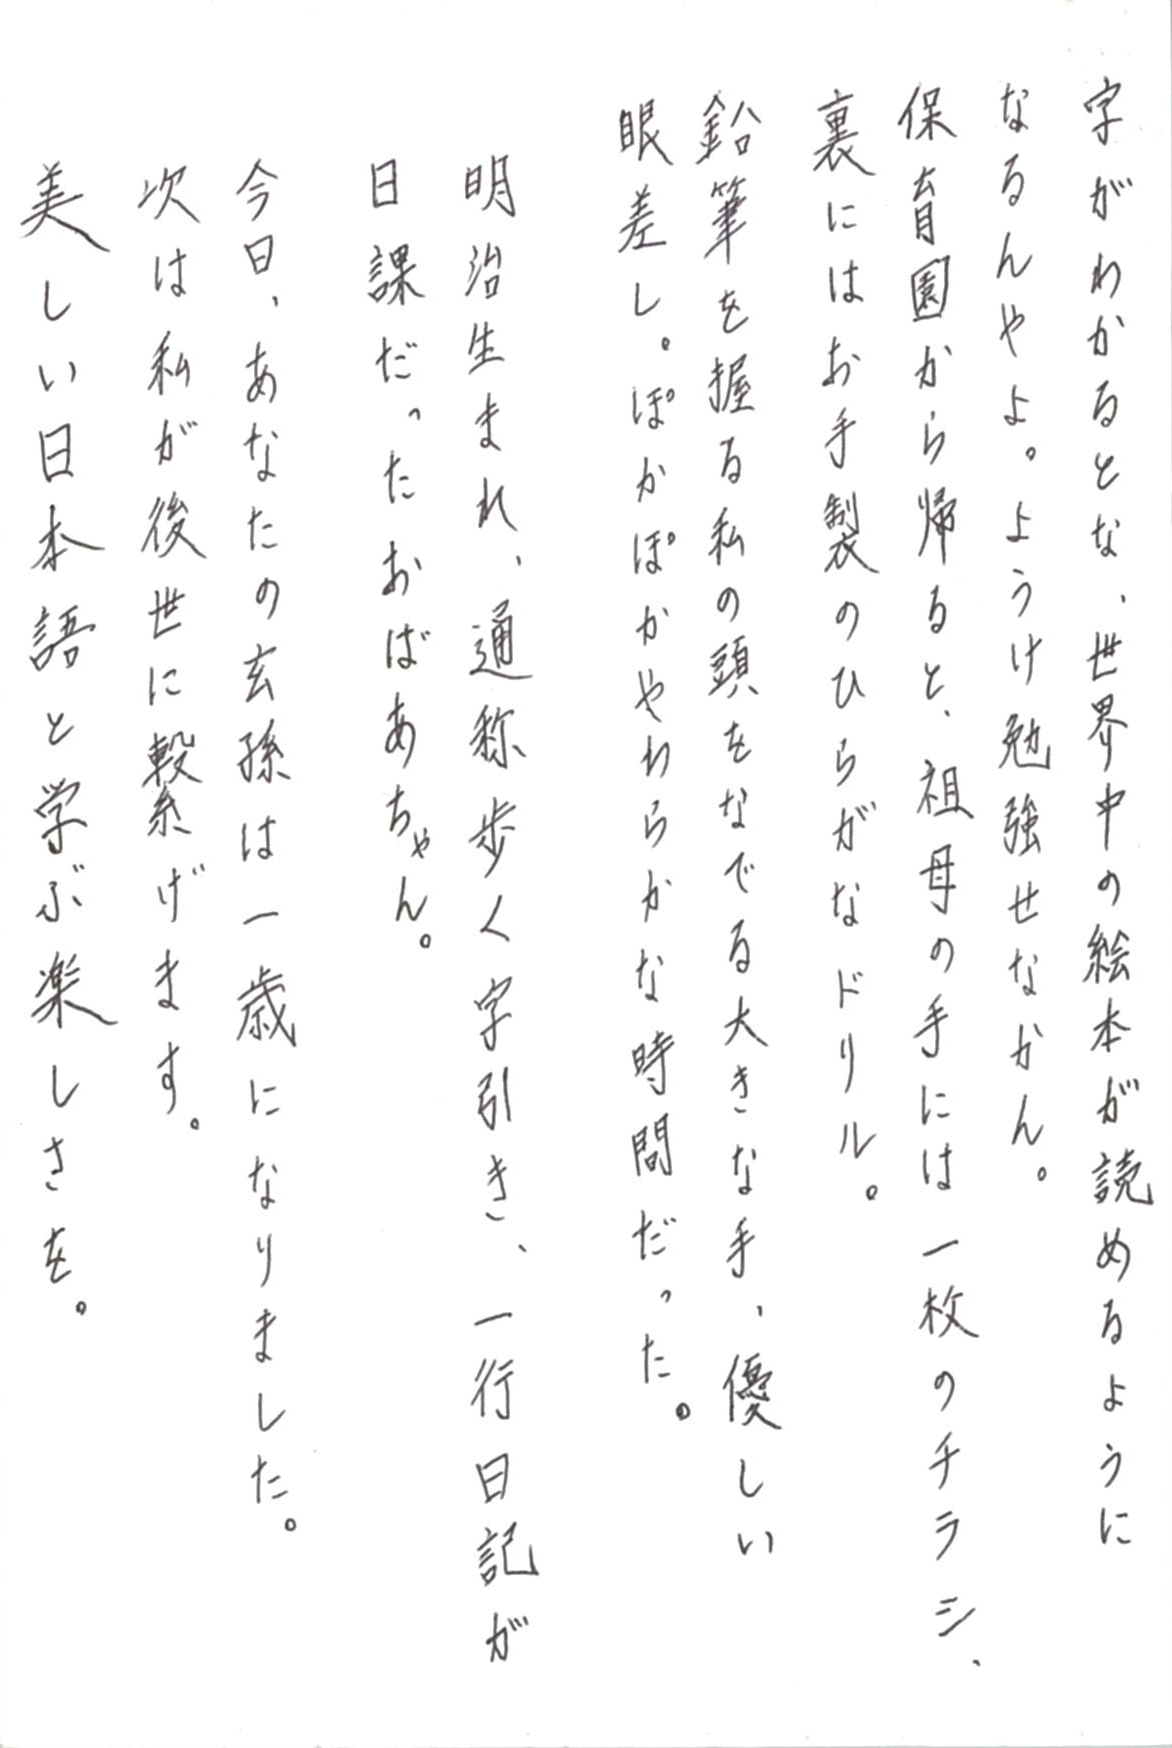 字がわかるとな、世界中の絵本が読めるように
なるんやよ。ようけ勉強せなかん。
保育園から帰ると、祖母の手には一枚のチラシ、
裏にはお手製のひらがなドリル。
鉛筆を握る私の頭をなでる大きな手、優しい
眼差し。ぽかぽかやわらかな時間だった。
明治生まれ、通称歩く字引き、一行日記が
日課だったおばあちゃん。
今日、あなたの玄孫は一歳になりました。
次は私が後世に繋げます。
美しい日本語と学ぶ楽しさを。